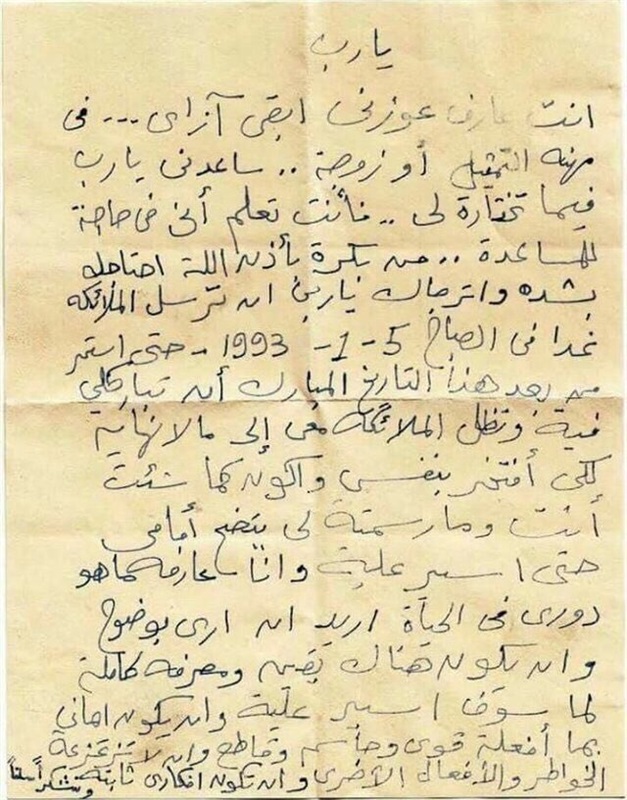 يارب
انت عارف عوزنى ابقى آزاى ... فى
مهنة التمثيل أو زوجة .. ساعدنى يارب
فيما تختارة لى .. فأنت تعلم أنى فى حاجة
للمساعدة .. من بكرة بأذن اللة احتاجله
بشده واترجاك يارب ان ترسل الملائكه
غدا فى الصباح 5 - 1 - 1993 - حتى استمر
من بعد هذا التاريخ المبارك أن تباركلي
فية وتظل الملائكة معى إلى مالانهاية
لكى أفتخر بنفسى واكون كما شئت
أنت ومارسمتة لى يتضح أمامى
حتى اسير علية وانا عارفه ماهو
دورى فى الحياة اريد ان ارى بوضوح
وان يكون هناك يقين ومعرفه كاملة
لما سوف اسير علية وان يكون ايماني
بما أفعلة قوى وحاسم وقاطع وان لاتزعزعة
الخواطر والأفعال الأخرى وان تكون افكارى ثابتة وشكرا